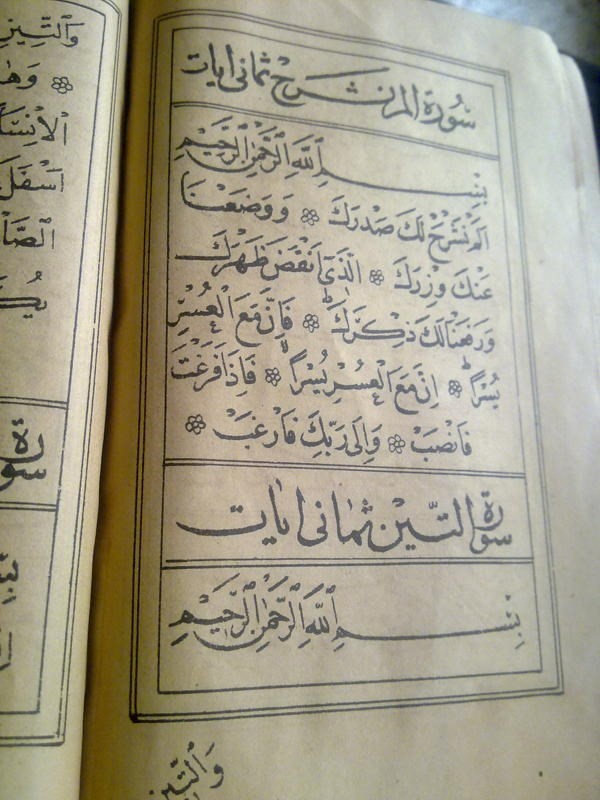 سورة الم نشرح ثمانى ايات
بِسْمِ اللّٰهِ الرَّحْمٰنِ الرَّحِيمِ
اَلَمْ نَشْرَحْ لَكَ صَدْرَكَ ۞ وَوَضَعْنَا
عَنْكَ وِزْرَكَ ۞ اَلَّذٖٓى اَنْقَضَ ظَهْرَكَ
وَرَفَعْنَا لَكَ ذِكْرَكَ ۞ فَاِنَّ مَعَ الْعُسْرِ
يُسْرًا ۞ اِنَّ مَعَ الْعُسْرِ يُسْرًا ۞ فَاِذَا فَرَغْتَ
فَانْصَبْ ۞ وَاِلٰى رَبِّكَ فَارْغَبْ ۞
سورة التين ثمانى ايات
بِسْمِ اللّٰهِ الرَّحْمٰنِ الرَّحِيمِ
وَالتّٖينِ
وَالتّٖينِ
الْاِنْسَا
اَسْفَلَ
سورة